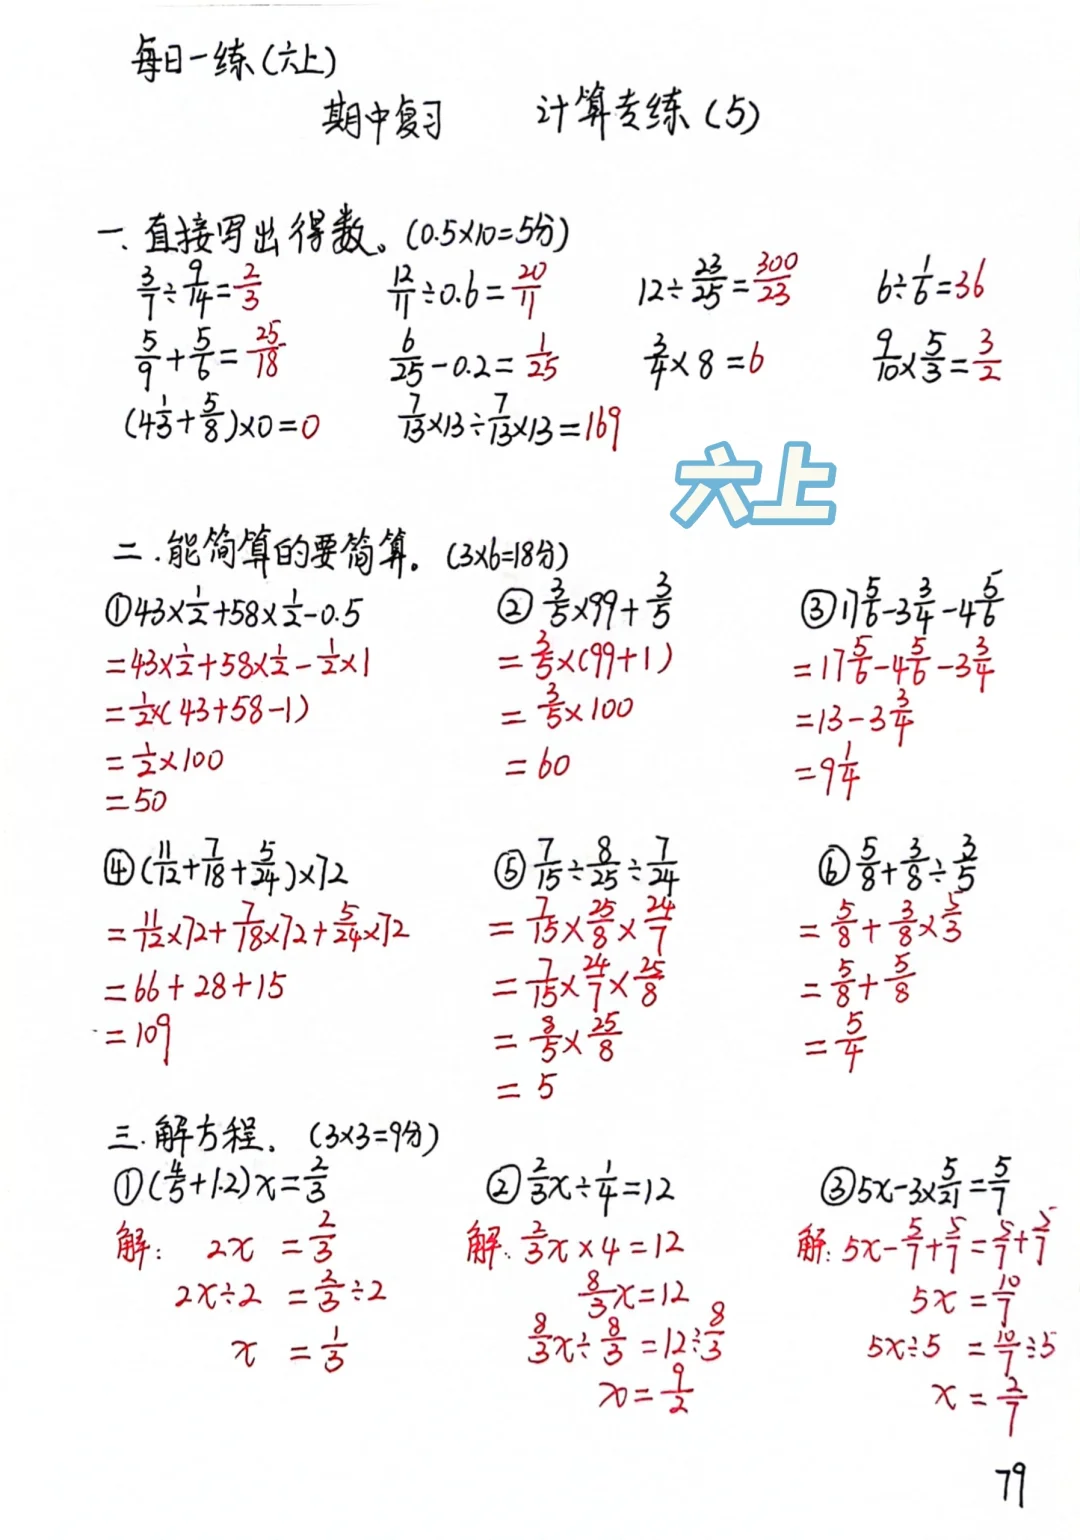 每日一练(六上)
期中复习 计算专练(5)
一、直接写出得数。(0.5×10=5分)
3/7÷9/14=2/3 12/11÷0.6=20/11 12÷23/25=300/23 6÷1/6=36
5/9+5/6=25/18 6/25-0.2=1/25 3/4×8=6 9/10×5/3=3/2
(4 1/3+5/8)×0=0 7/13×13÷7/13×13=169
六上
二.能简算的要简算。(3×6=18分)
①43×1/2+58×1/2-0.5
=43×1/2+58×1/2-1/2×1
=1/2×(43+58-1)
=1/2×100
=50
②3/5×99+3/5
=3/5×(99+1)
=3/5×100
=60
③17 5/6-3 3/4-4 5/6
=17 5/6-4 5/6-3 3/4
=13-3 3/4
=9 1/4
④(11/12+7/18+5/24)×72
=11/12×72+7/18×72+5/24×72
=66+28+15
=109
⑤7/15÷8/25÷7/24
=7/15×25/8×24/7
=7/15×24/7×25/8
=8/5×25/8
=5
⑥5/8+3/8÷3/5
=5/8+3/8×5/3
=5/8+5/8
=5/4
三.解方程。(3×3=9分)
①(4/5+1.2)x=2/3
解: 2x=2/3
2x÷2=2/3÷2
x=1/3
②2/3x÷1/4=12
解:2/3x×4=12
8/3x=12
8/3x÷8/3=12÷8/3
x=9/2
③5x-3×5/21=5/7
解:5x-5/7+5/7=5/7+5/7
5x=10/7
5x÷5=10/7÷5
x=2/7
79